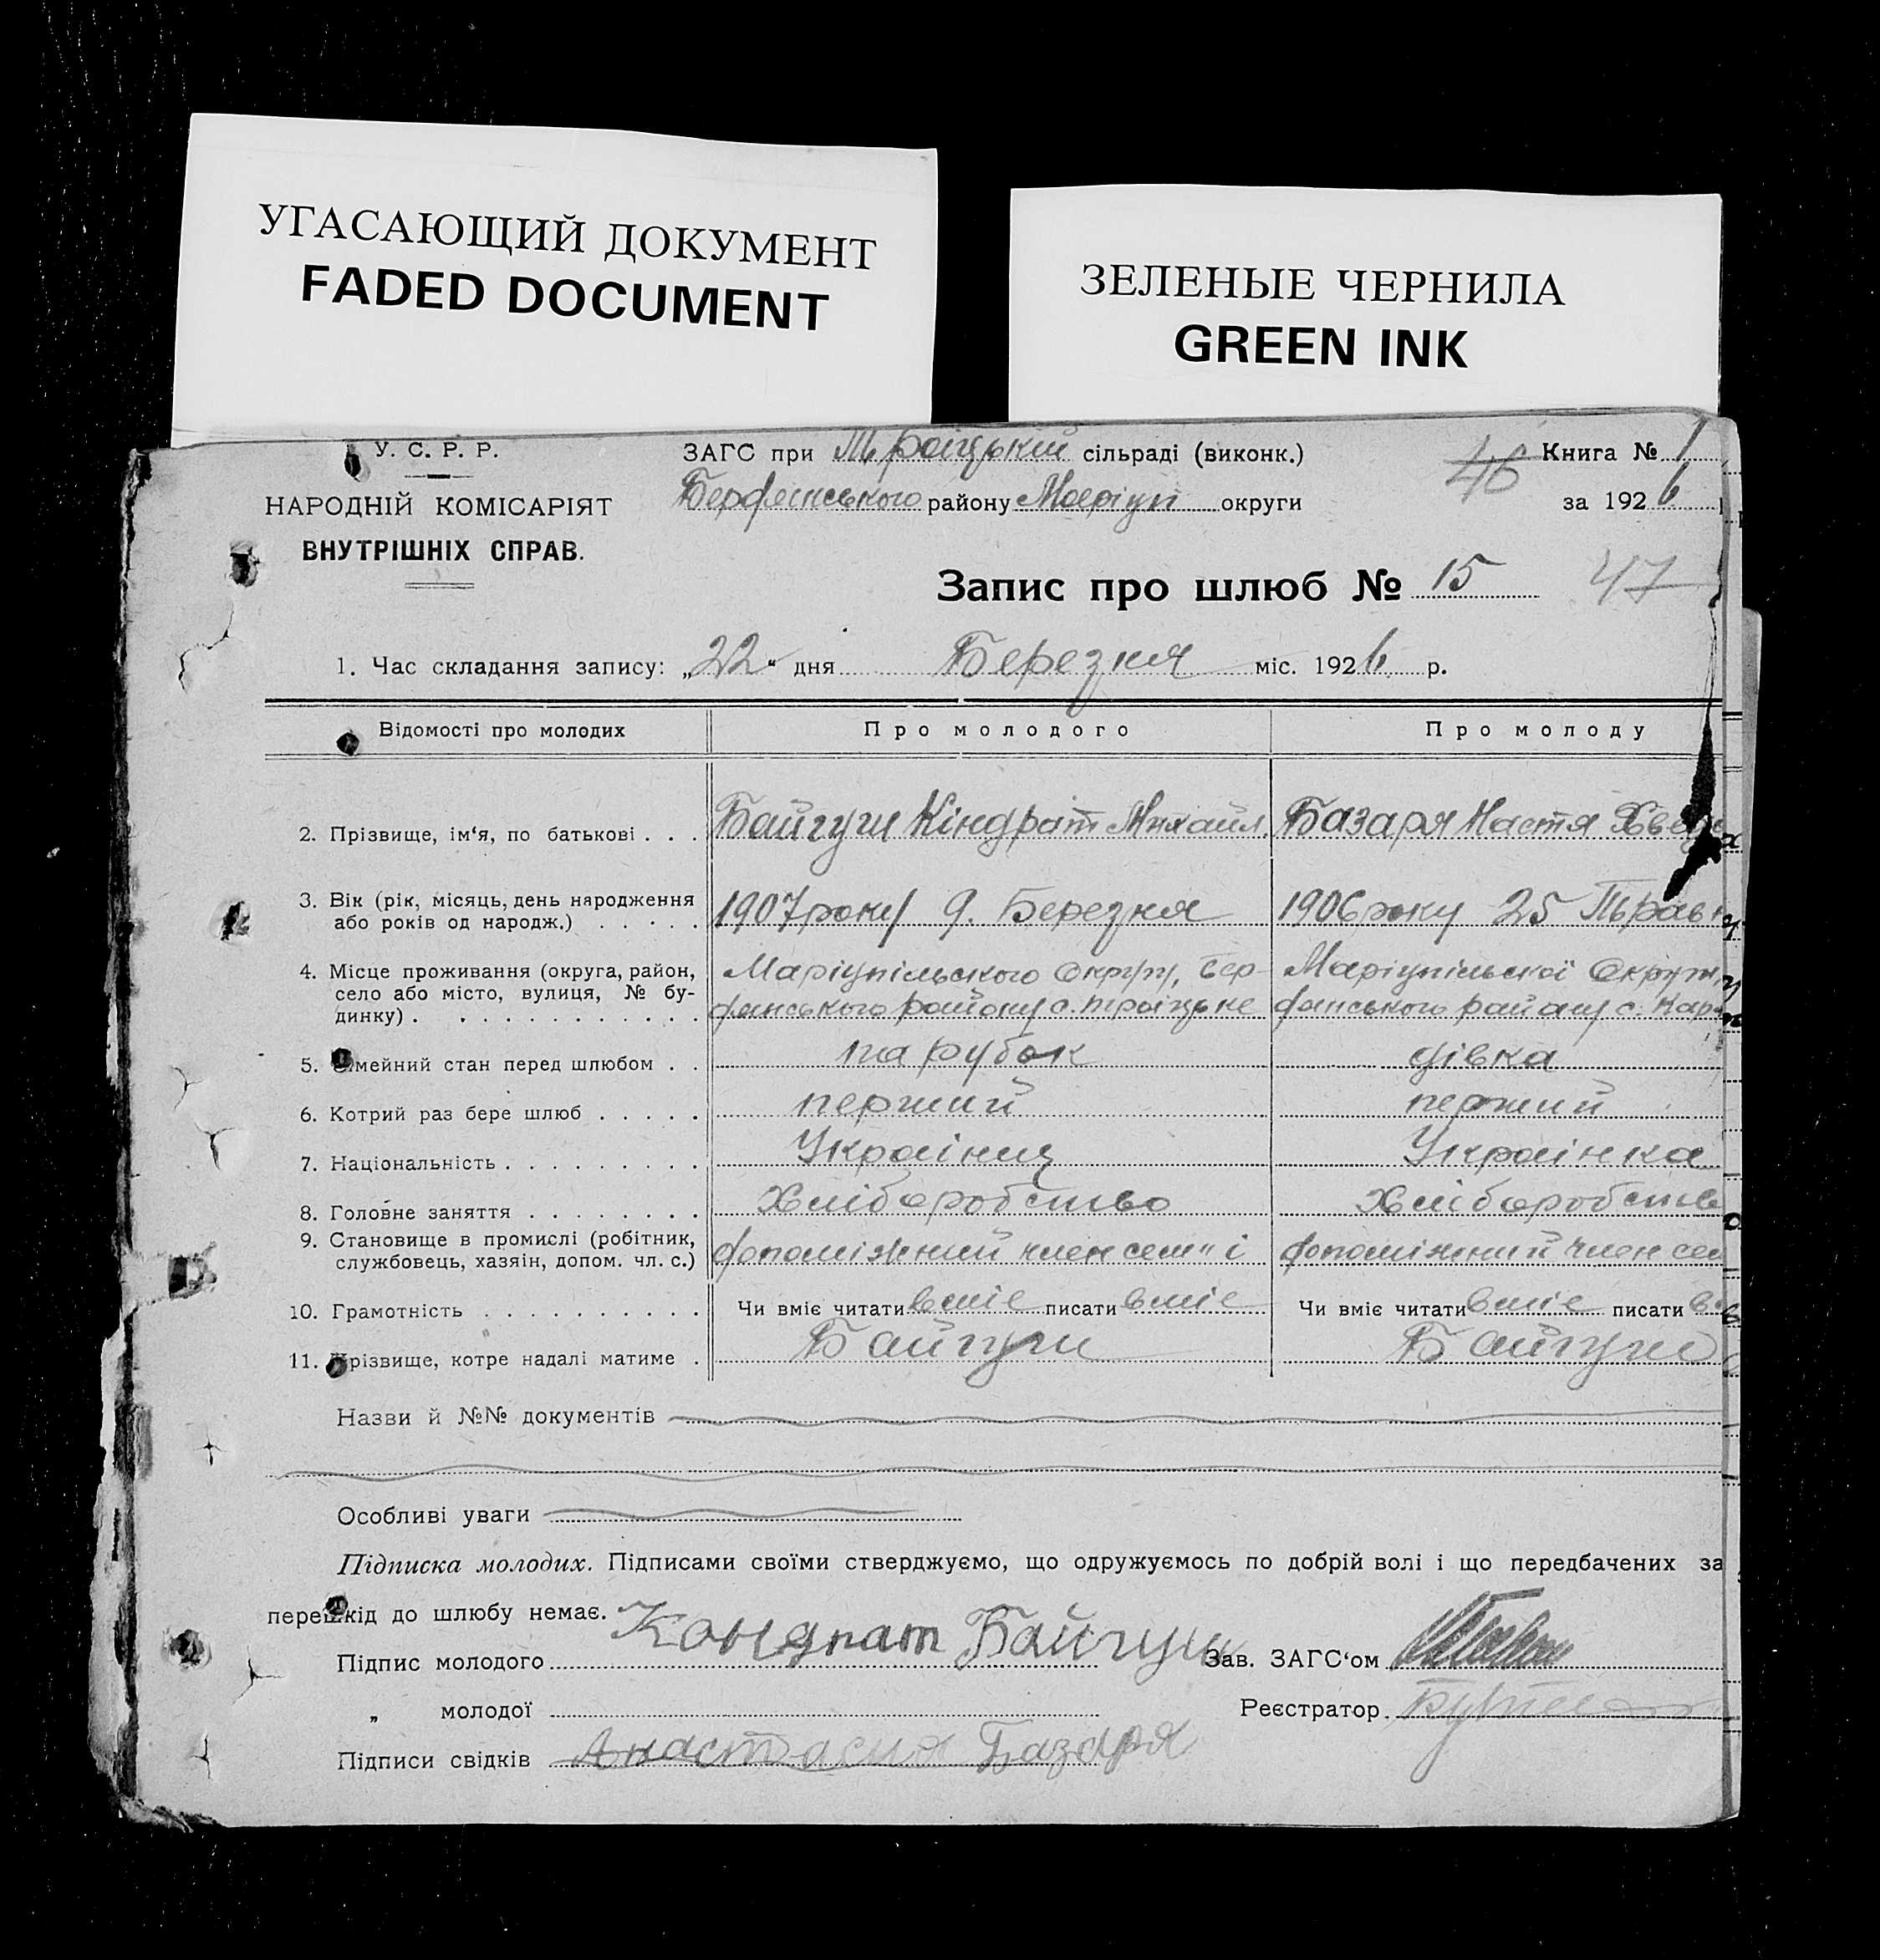 УГАСАЮЩИЙ ДОКУМЕНТ
FADED DOCUMENT
ЗЕЛЕНЫЕ ЧЕРНИЛА
GREEN INK
У. С. Р. Р.
НАРОДНІЙ КОМІСАРІЯТ
ВНУТРІШНІХ СПРАВ.
ЗАГС при Троіцькій сільраді (виконк.)
Бердянського району Маріуп округи
46
Книга № 1
за 1926
Запис про шлюб № 15
47
1. Час складання запису: „22“ дня Березня міс. 1926 р.
Відомості про молодих Про молодого Про молоду
2. Прізвище, ім‘я, по батькові . . . Байгуш Кіндрат Михайл. Базаря Настя
3. Вік (рік, місяць, день народження
або років од народж.) . . . . . 1907 року 9. Березня 1906 року 25
4. Місце проживання (округа, район, Маріупільського Округу, Бер- Маріупільскої Округи,
село або місто, вулиця, № бу-
динку) . . . . . . . . . . . . дянського району с. Троіцьке дянського району с. Кар
5. Сімейний стан перед шлюбом . . парубок дівка
6. Котрий раз бере шлюб . . . . . перший перший
7. Національність . . . . . . . . . Украінец Украінка
8. Головне заняття . . . . . . . . Хліборобство Хліборобство
9. Становище в промислі (робітник,
службовець, хазяін, допом. чл. с.) допоміжний член сем"і допоміжний член сем
10. Грамотність . . . . . . . . . . Чи вміє читати вміє писати вміє Чи вміє читати вміє писати
11. Прізвище, котре надалі матиме . Байгуш Байгуш
Назви й №№ документів
Особливі уваги
Підписка молодих. Підписами своїми стверджуємо, що одружуємось по добрій волі і що передбачених за
перешкід до шлюбу немає.
Підпис молодого Кондрат Байгуш Зав. ЗАГС‘ом
„ молодої Реєстратор
Підписи свідків Анастасия Базаря